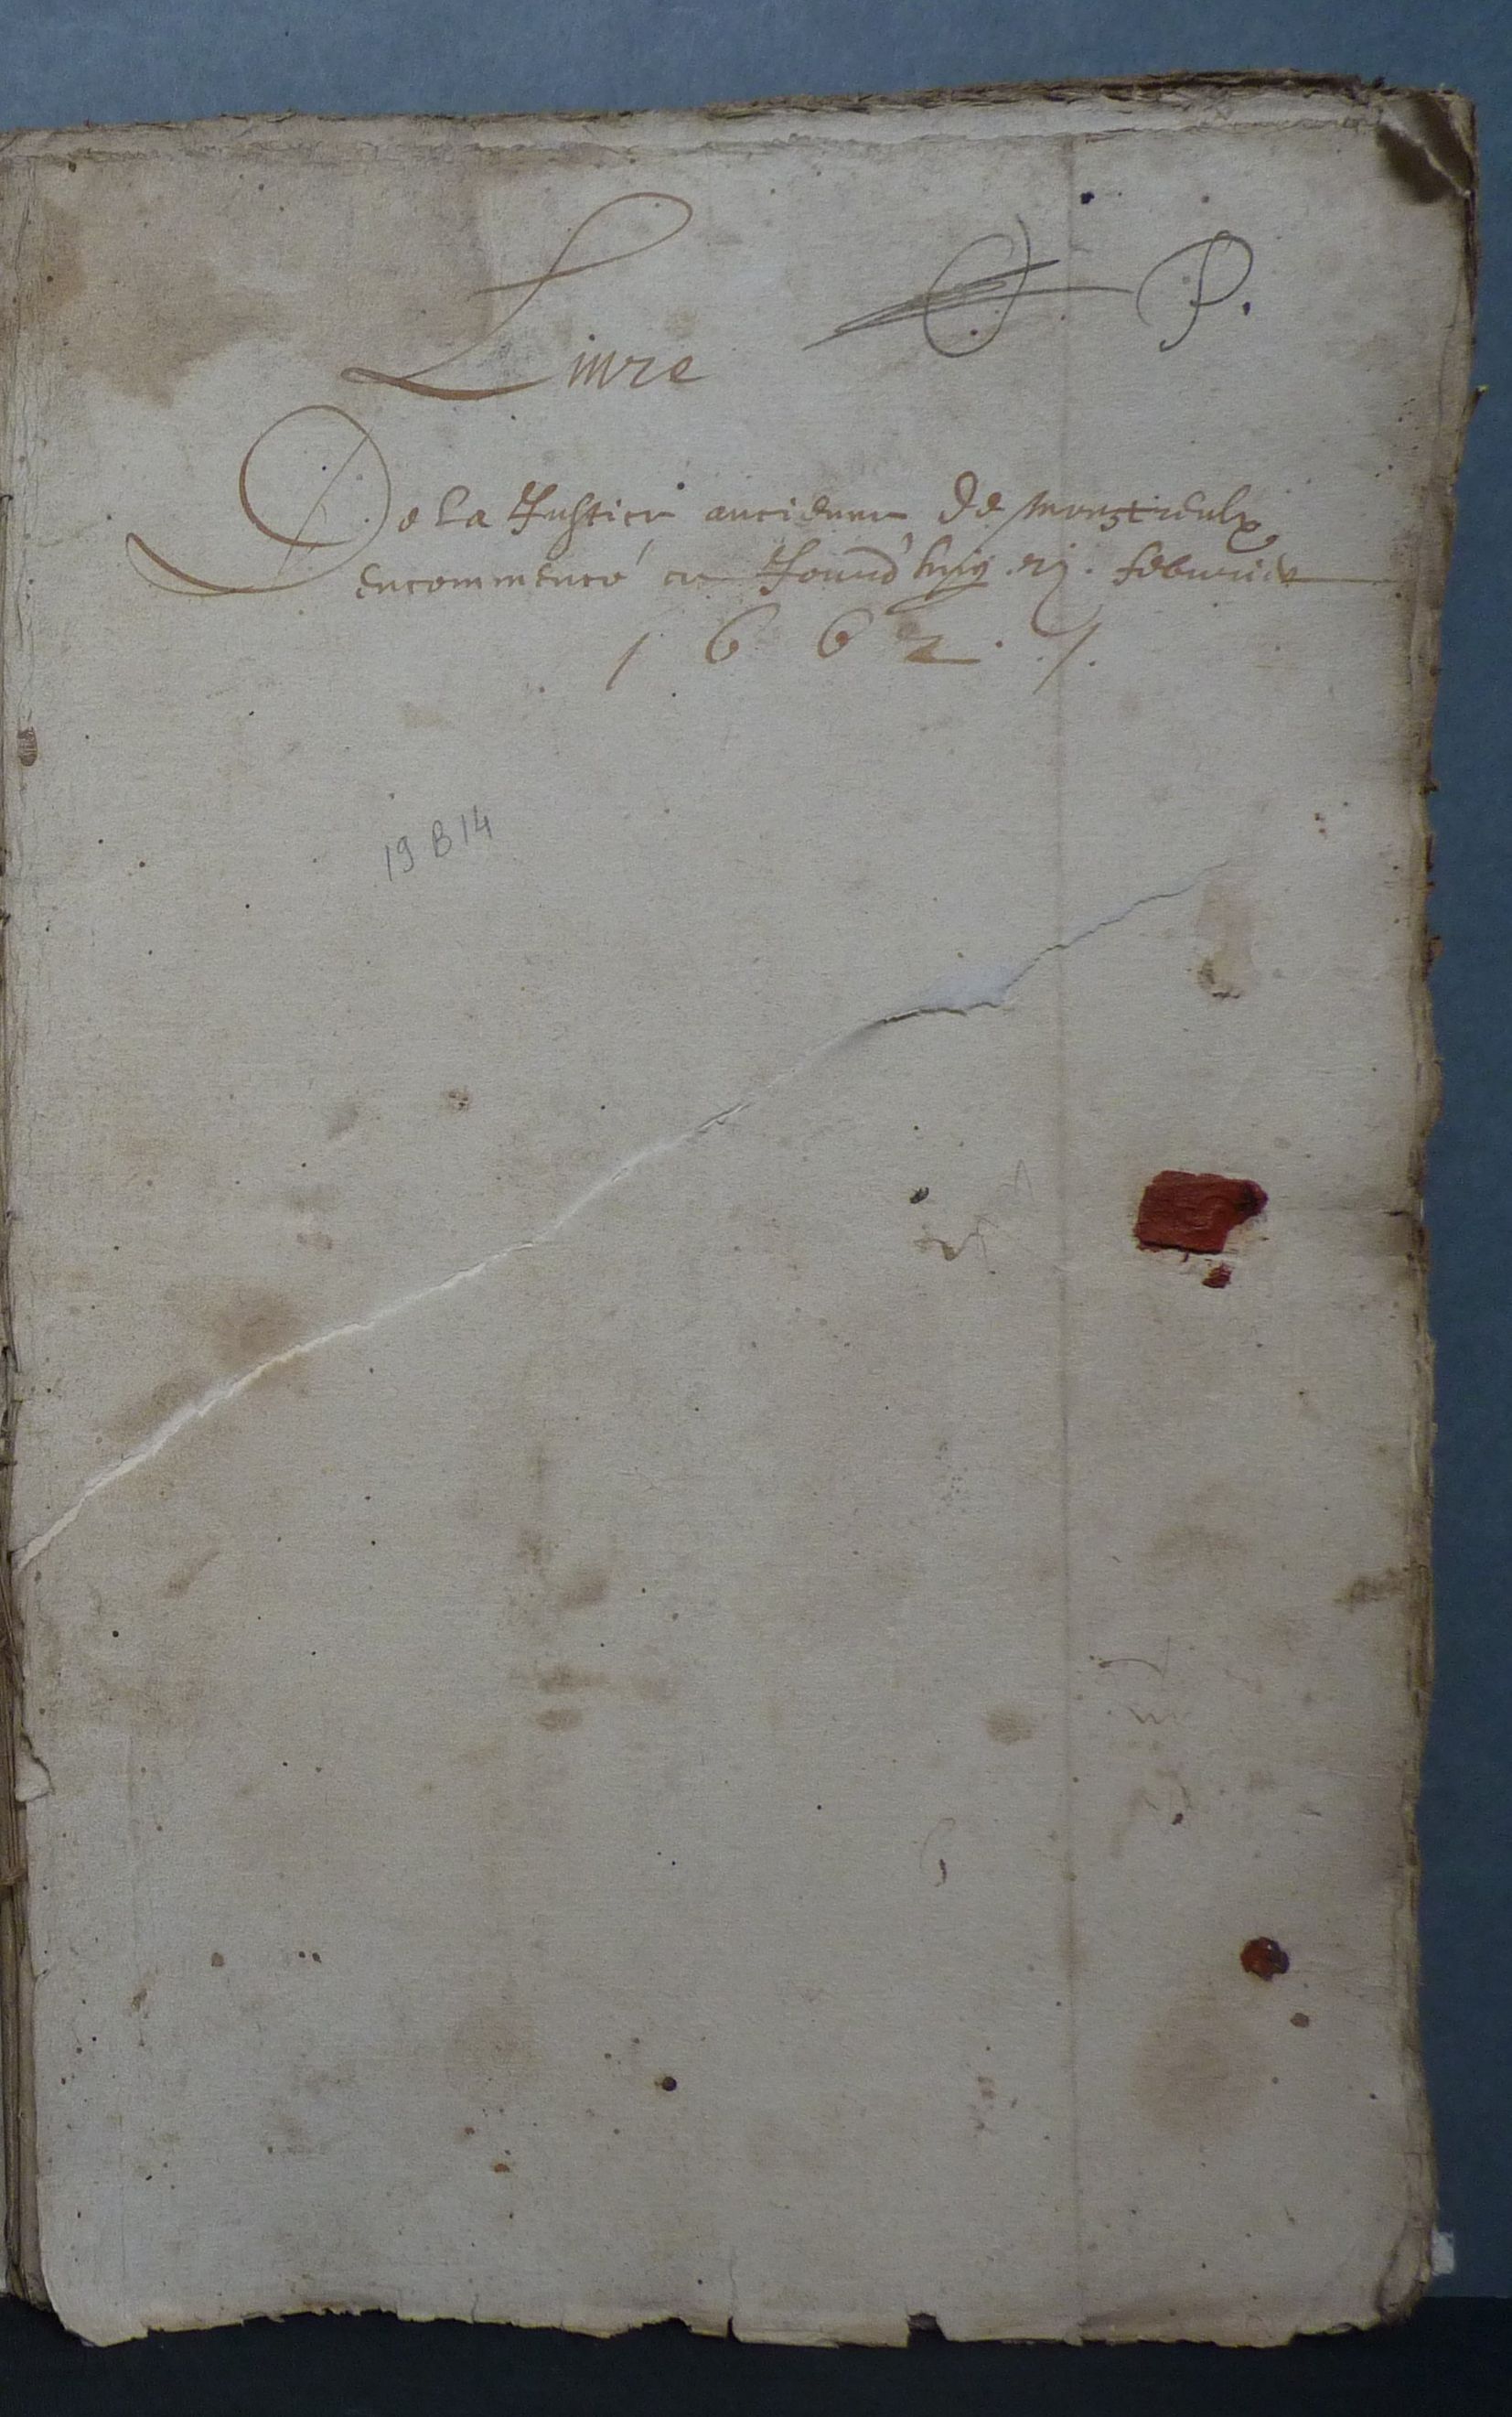 Liure P.
De la Justice ancienne de Monstreulx
encommencé ce Jourd'huy .xj. febvrier
1662.
19 B 14